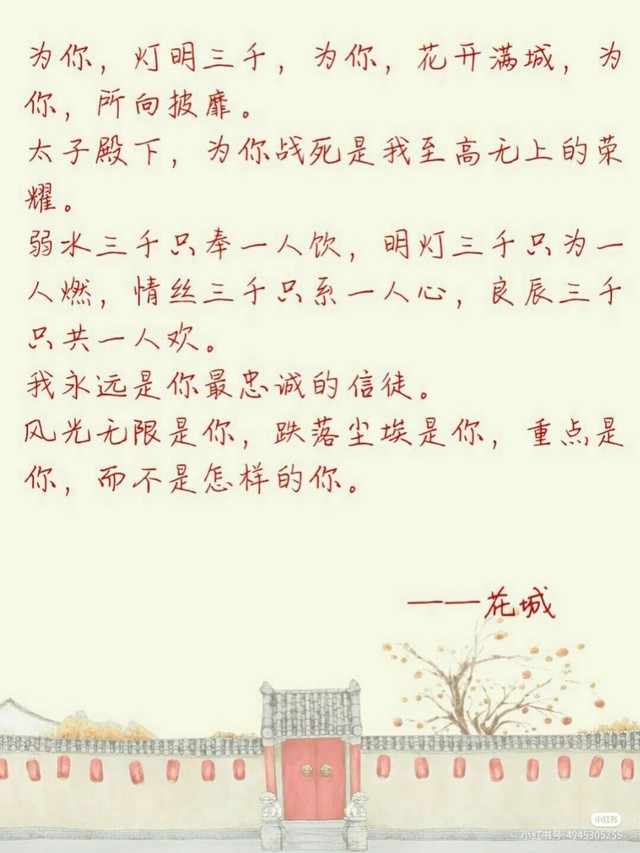 为你，灯明三千，为你，花开满城，为
你，所向披靡。
太子殿下，为你战死是我至高无上的荣
耀。
弱水三千只奉一人饮，明灯三千只为一
人燃，情丝三千只系一人心，良辰三千
只共一人欢。
我永远是你最忠诚的信徒。
风光无限是你，跌落尘埃是你，重点是
你，而不是怎样的你。
——花城
小红书
小红书号:4945305255